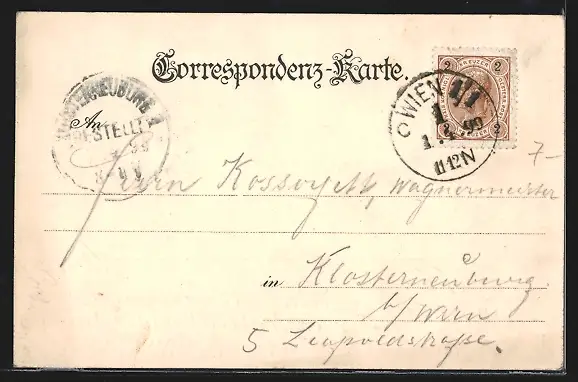 Correspondenz-Karte.
2 KREUZER 2
WIEN 1/1
1
1. 99
11 12 N
KLOSTERNEUBURG
BESTELLT
99
An
7-
Herrn Wagnermeister
in Klosterneuburg.
b/Wien
5 Leopoldstraße.